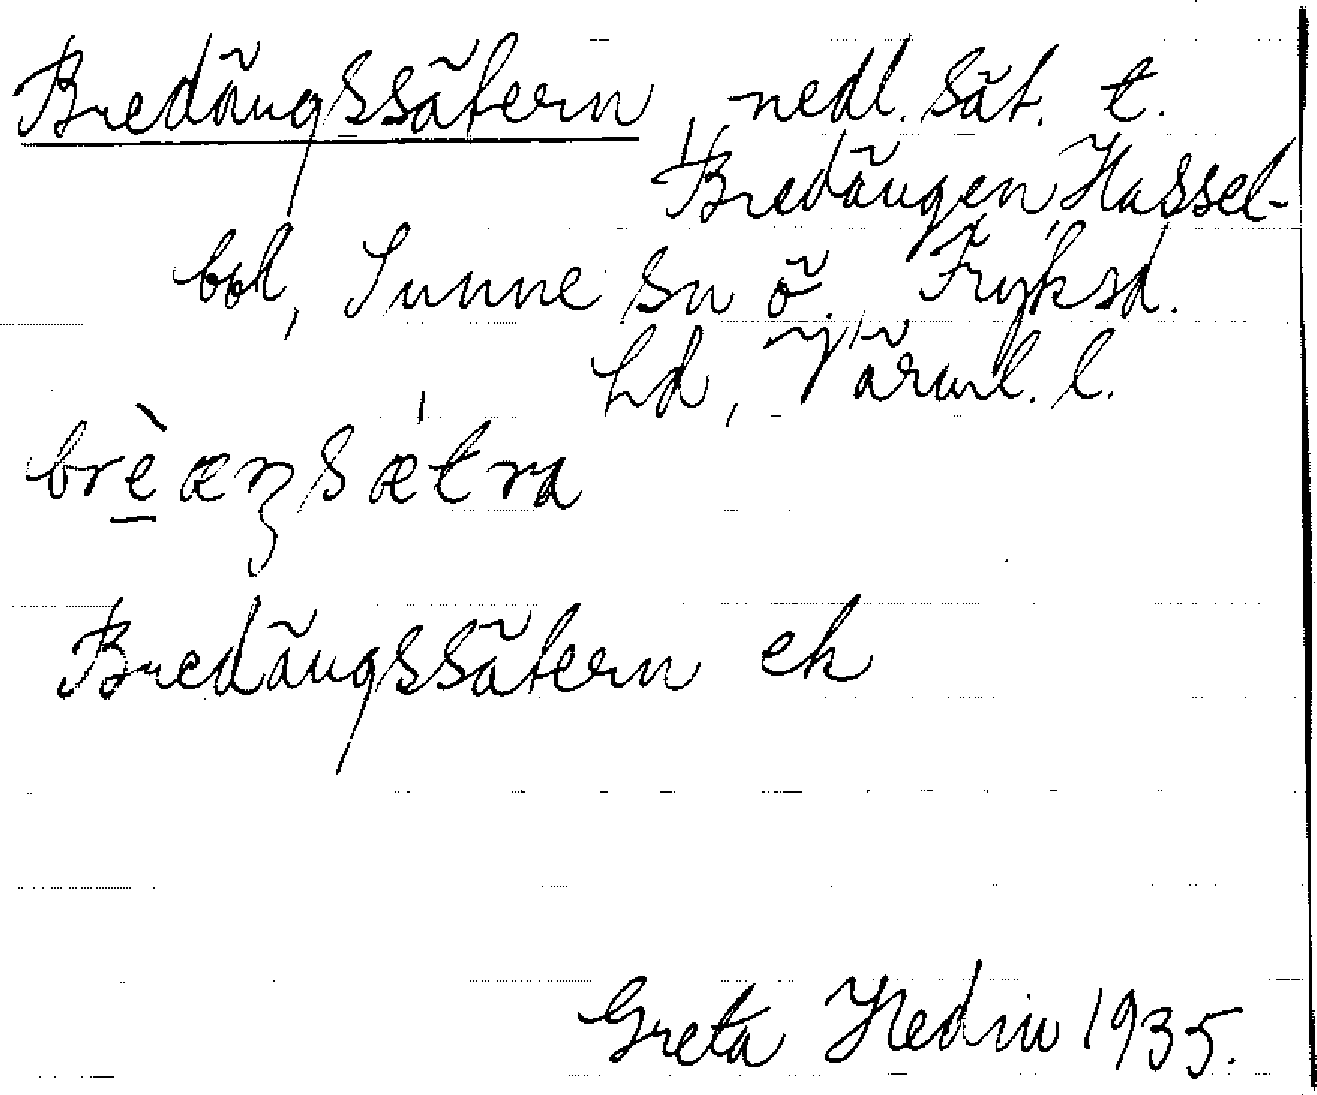 Bredängssätern, nedl. sät. t.
Bredängen, Hassel-
bol, Sunne sn ö. Fryksd.
hd, Värml. l.
brèæŋsætra
Bredängssätern ek
Greta Hedin 1935.